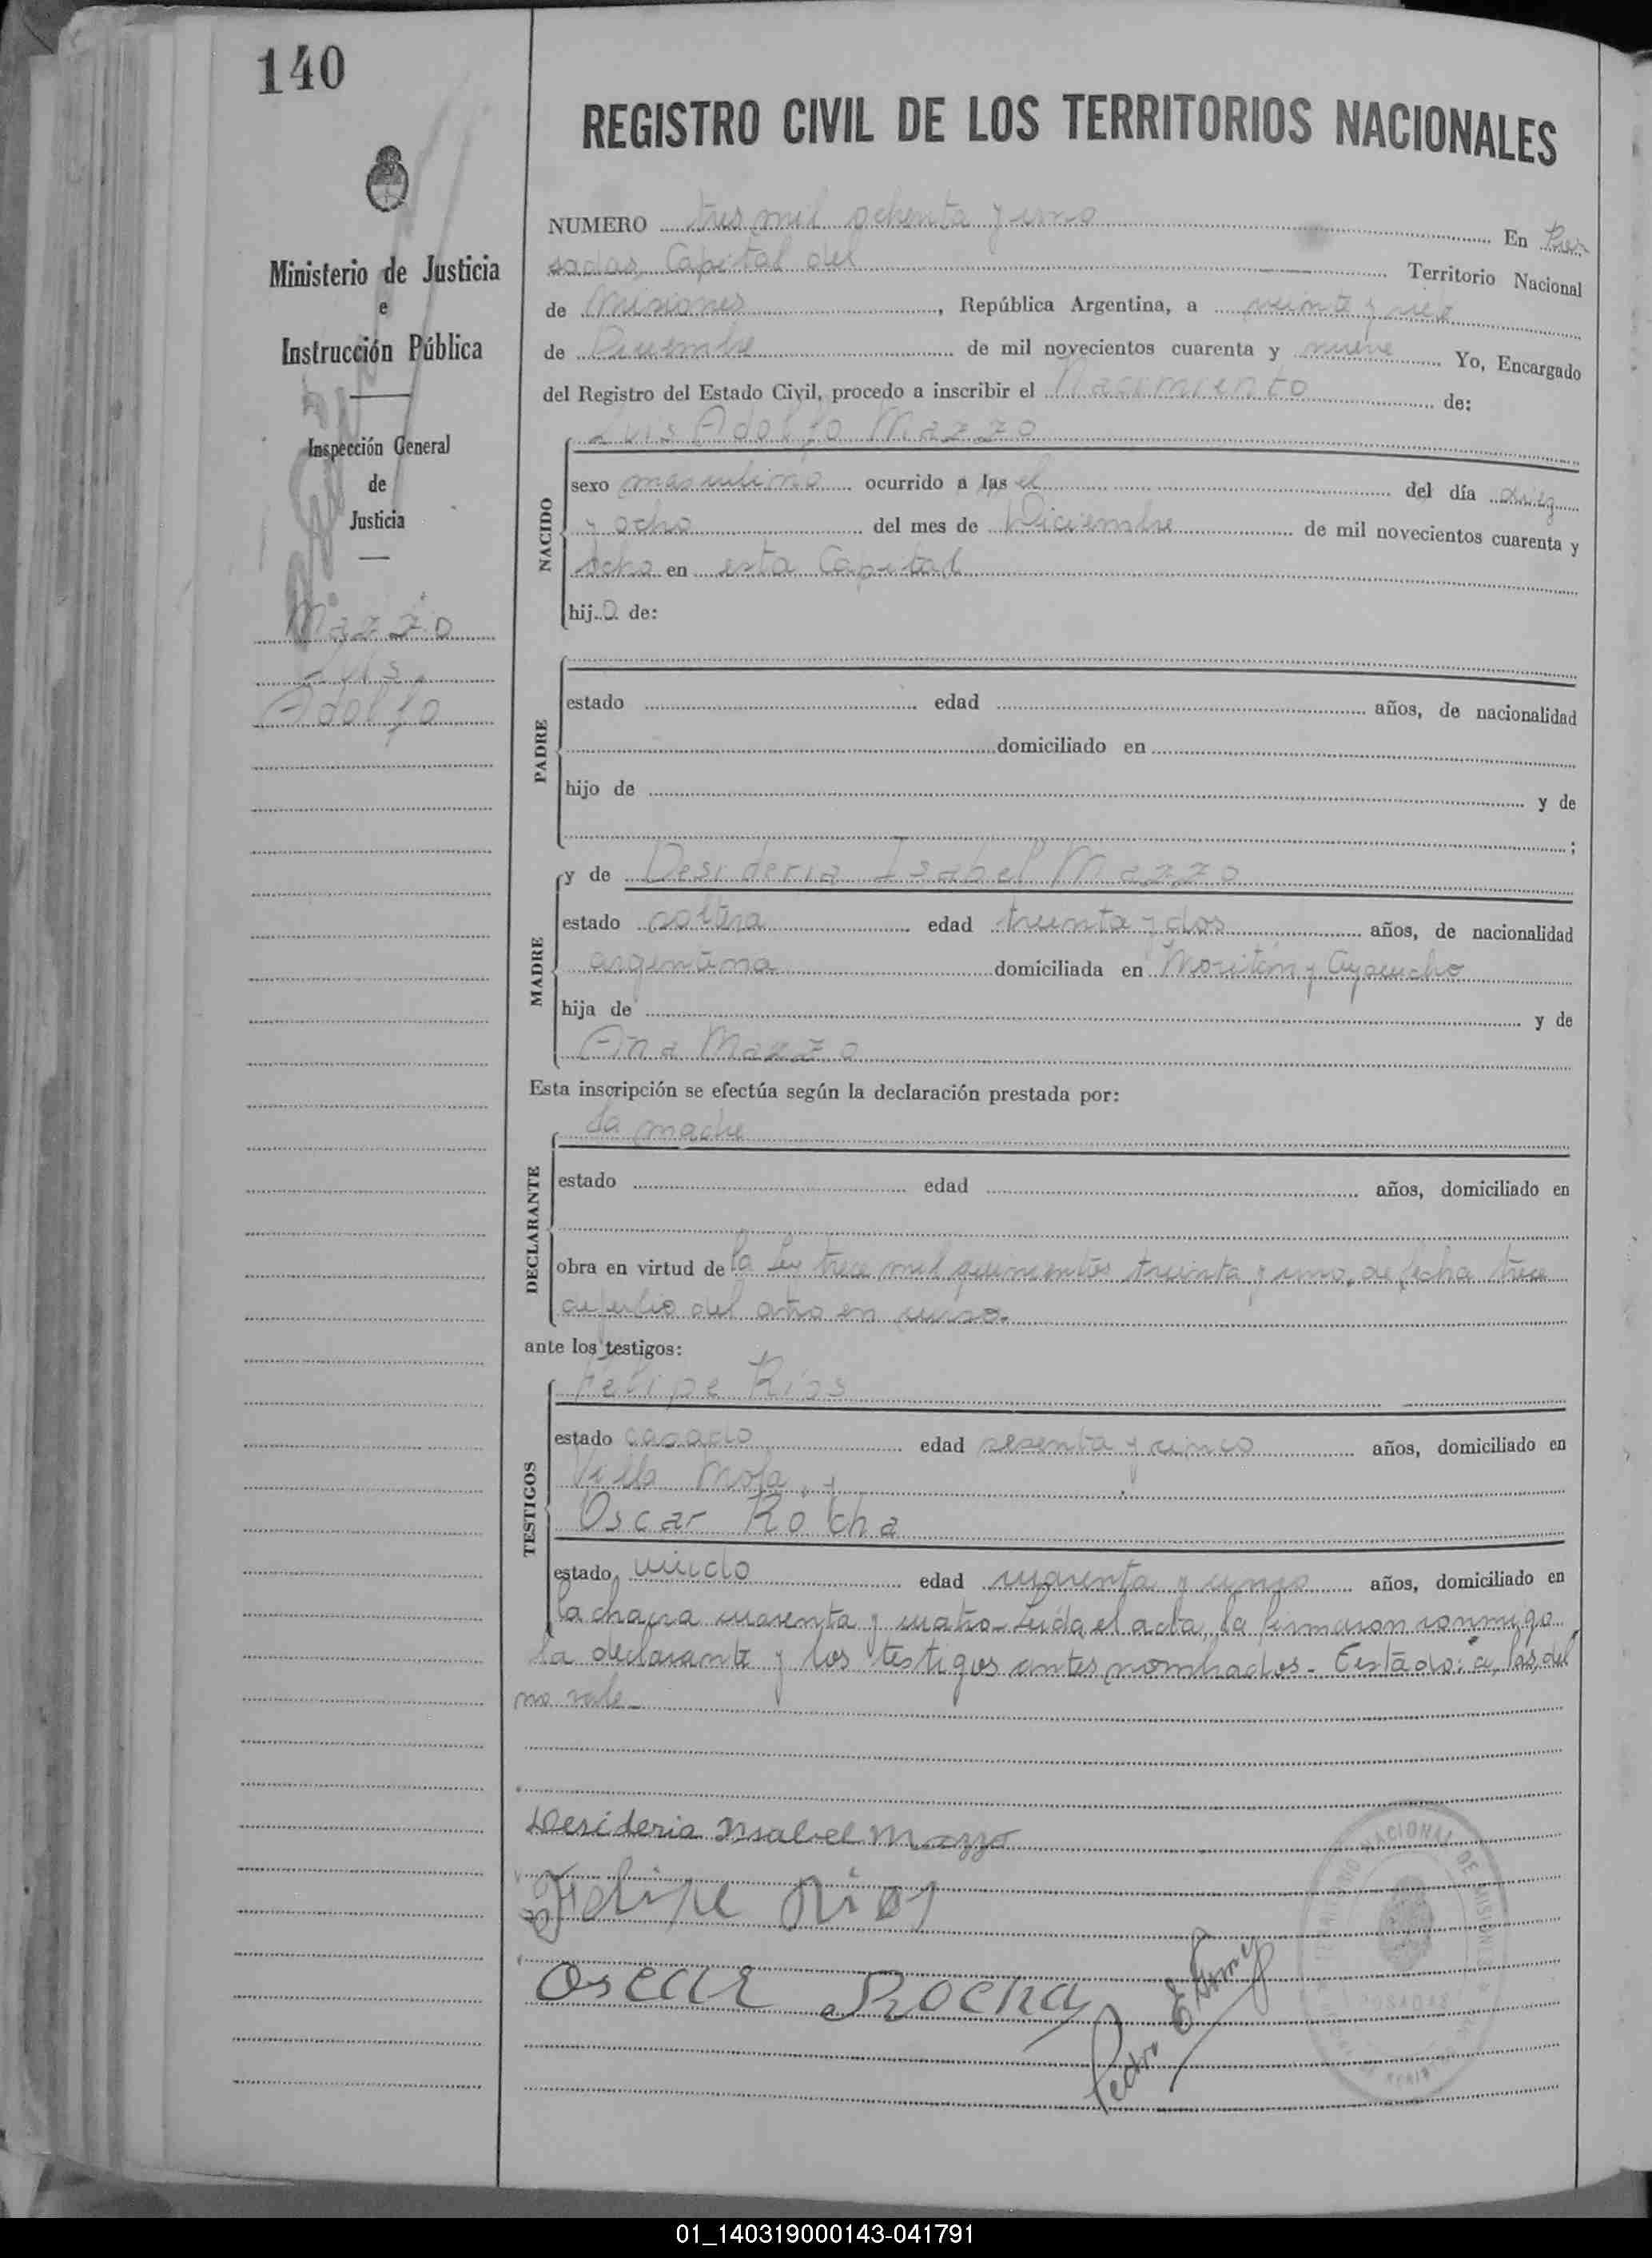 140
REGISTRO CIVIL DE LOS TERRITORIOS NACIONALES
Ministerio de Justicia
e
Instrucción Pública
Inspección General
de
Justicia
Mazzo
Luis
Adolfo
NUMERO tres mil ochenta y uno En Po-
sadas Capital del Territorio Nacional
de Misiones, República Argentina, a veinte y
de Diciembre de mil novecientos cuarenta y nueve Yo, Encargado
del Registro del Estado Civil, procedo a inscribir el Nacimiento de:
Luis Adolfo Mazzo
NACIDO
sexo masculino ocurrido a las el del día diez
y ocho del mes de Diciembre de mil novecientos cuarenta y
ocho en esta Capital
hijo de:
PADRE
estado edad años, de nacionalidad
domiciliado en
hijo de y de
;
MADRE
y de Desideria Isabel Mazzo
estado soltera edad treinta y dos años, de nacionalidad
argentina domiciliada en y Ayacucho
hija de y de
Ana Mazzo
Esta inscripción se efectúa según la declaración prestada por:
DECLARANTE
La madre
estado edad años, domiciliado en
obra en virtud de la ley trece mil quinientos treinta y uno, de fecha trece
de julio del año en curso.
ante los testigos:
TESTIGOS
Felipe Ríos
estado casado edad sesenta y cinco años, domiciliado en
Villa Mola, y
Oscar Rocha
estado viudo edad cuarenta y cinco años, domiciliado en
la chacra cuarenta y cuatro. Leída el acta, la firmaron conmigo
la declarante y los testigos antes nombrados. Testado: a, las, del
no vale
Desideria Isabel Mazzo
Felipe Rios
Oscar Rocha
Pedro E. Gomez
TERRITORIO NACIONAL DE MISIONES
POSADAS
01_140319000143-041791